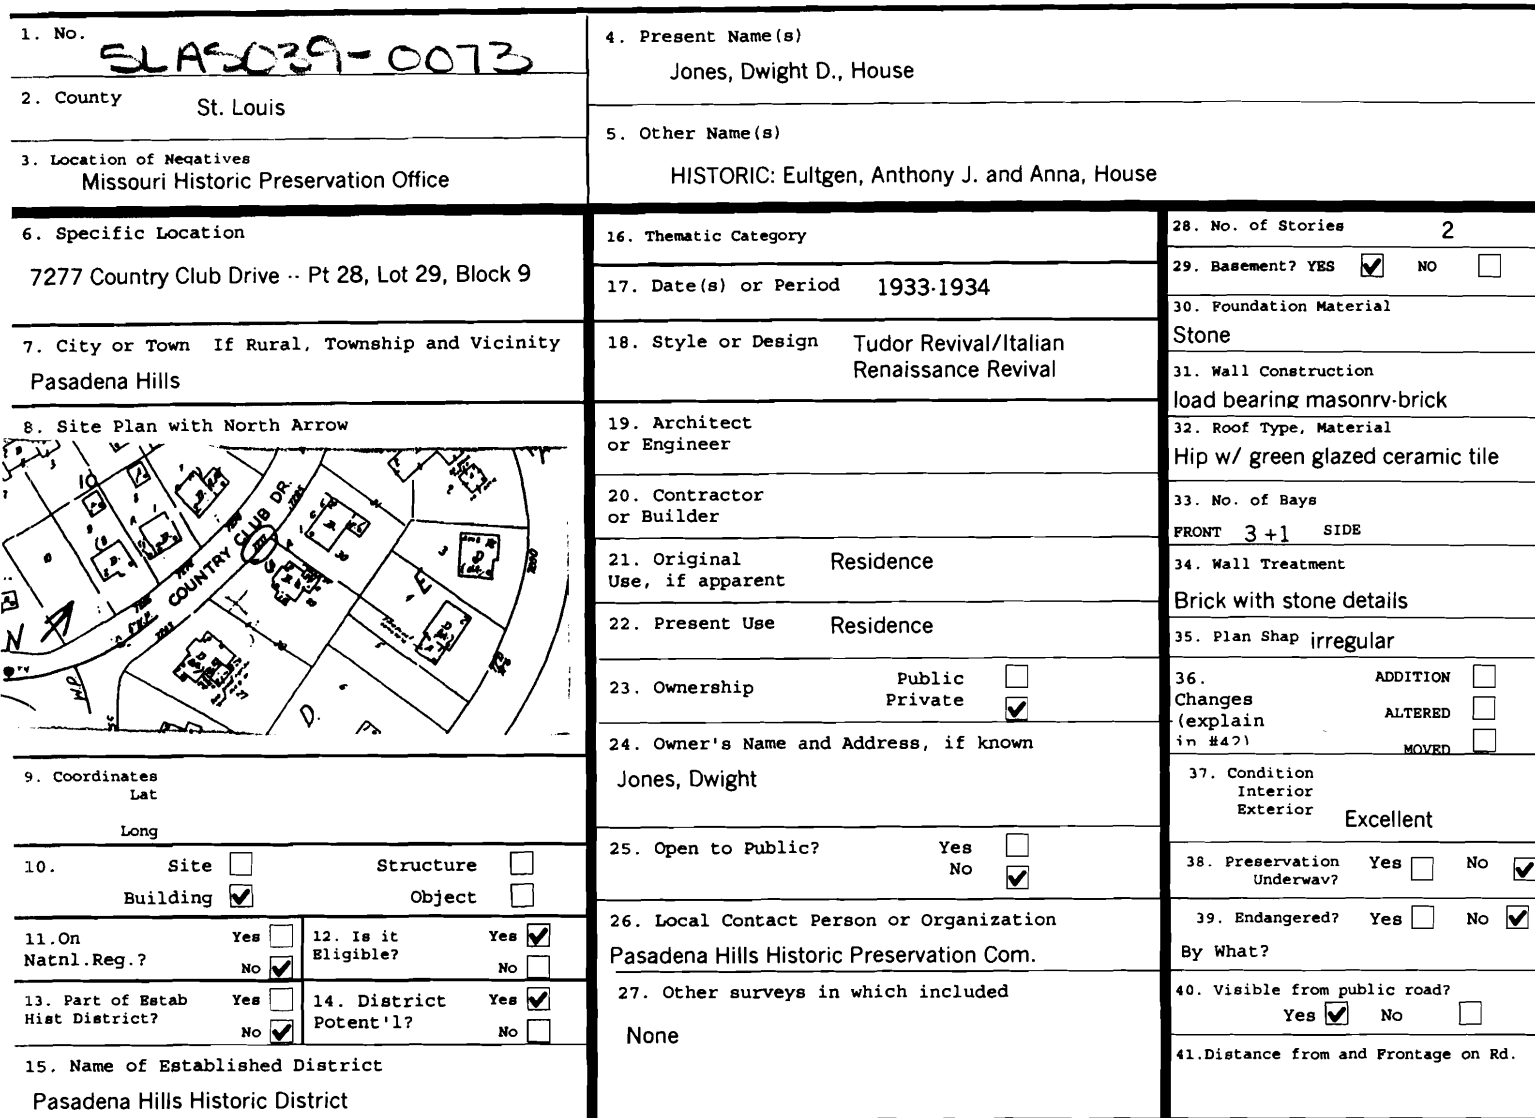 1. No. SLAS039-0073
2. County St. Louis
3. Location of Negatives
Missouri Historic Preservation Office
4. Present Name(s)
Jones, Dwight D., House
5. Other Name(s)
HISTORIC: Eultgen, Anthony J. and Anna, House
6. Specific Location
7277 Country Club Drive -- Pt 28, Lot 29, Block 9
7. City or Town If Rural, Township and Vicinity
Pasadena Hills
8. Site Plan with North Arrow
10
COUNTRY CLUB DR.
N
D.
9. Coordinates
Lat
Long
10. Site Structure
Building ✓ Object
11.On Yes
Natnl.Reg.? No ✓
12. Is it Yes ✓
Eligible? No
13. Part of Estab Yes
Hist District? No ✓
14. District Yes ✓
Potent'l? No
15. Name of Established District
Pasadena Hills Historic District
16. Thematic Category
17. Date(s) or Period 1933-1934
18. Style or Design Tudor Revival/Italian
Renaissance Revival
19. Architect
or Engineer
20. Contractor
or Builder
21. Original Residence
Use, if apparent
22. Present Use Residence
23. Ownership Public
Private ✓
24. Owner's Name and Address, if known
Jones, Dwight
25. Open to Public? Yes
No ✓
26. Local Contact Person or Organization
Pasadena Hills Historic Preservation Com.
27. Other surveys in which included
None
28. No. of Stories 2
29. Basement? YES ✓ NO
30. Foundation Material
Stone
31. Wall Construction
load bearing masonry-brick
32. Roof Type, Material
Hip w/ green glazed ceramic tile
33. No. of Bays
FRONT 3+1 SIDE
34. Wall Treatment
Brick with stone details
35. Plan Shap irregular
36. ADDITION
Changes
(explain ALTERED
in #42) MOVED
37. Condition
Interior
Exterior Excellent
38. Preservation Yes No ✓
Underway?
39. Endangered? Yes No ✓
By What?
40. Visible from public road?
Yes ✓ No
41.Distance from and Frontage on Rd.